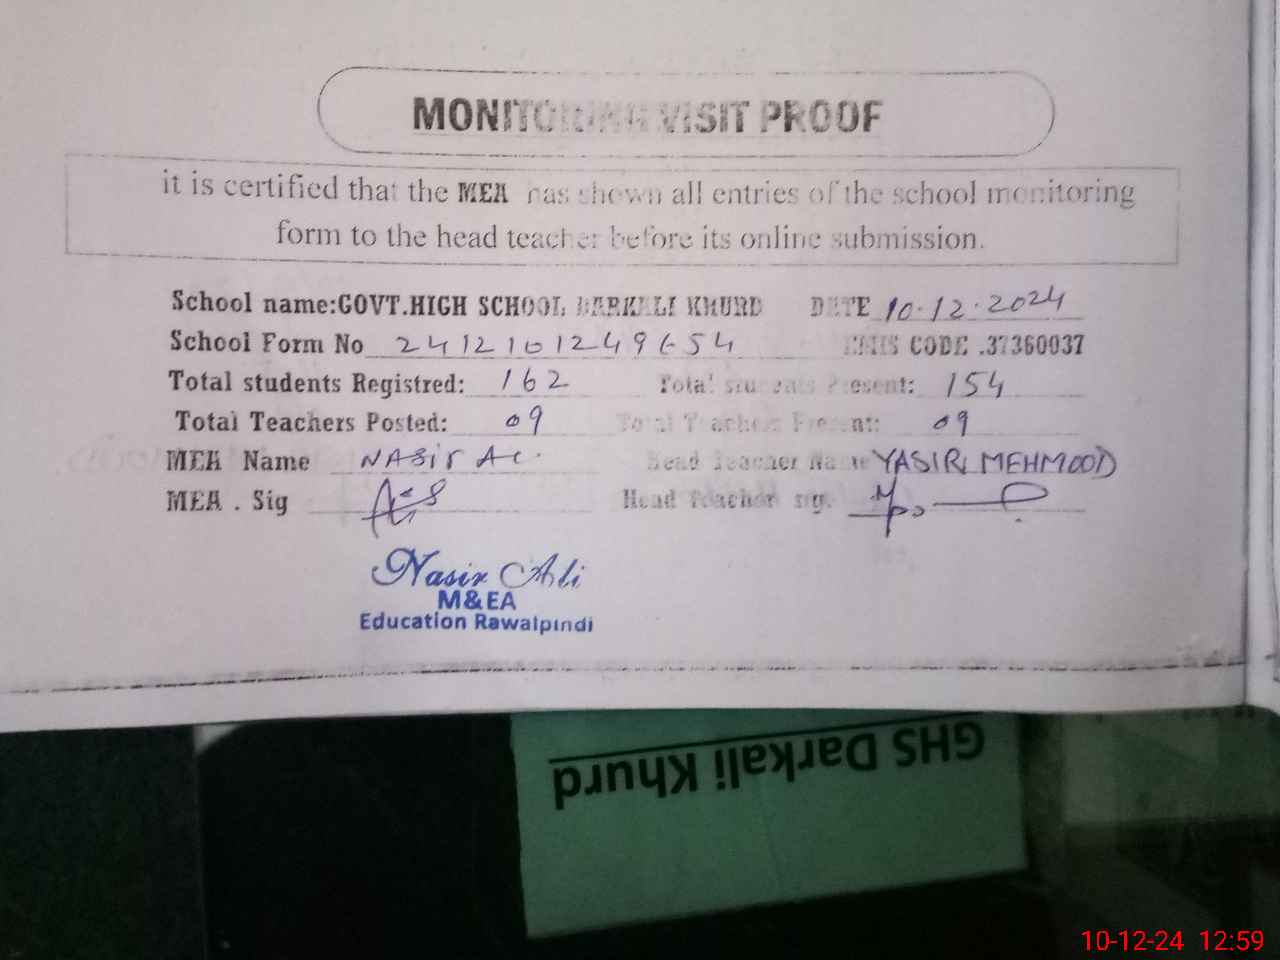 MONITORING VISIT PROOF
it is certified that the MEA has shown all entries of the school monitoring
form to the head teacher before its online submission.
School name:GOVT.HIGH SCHOOL DARKALI KHURD DATE 10.12.2024
School Form No 2412101249654 EMIS CODE .37360037
Total students Registred: 162 Total students Present: 154
Total Teachers Posted: 09 Total Teachers Present: 09
MEA Name NASIR ALI Head Teacher Name YASIR MEHMOOD
MEA . Sig Head Teacher sig.
Nasir Ali
M&EA
Education Rawalpindi
GHS Darkali Khurd
10-12-24 12:59